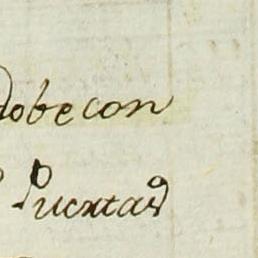 dobe con
Puertas